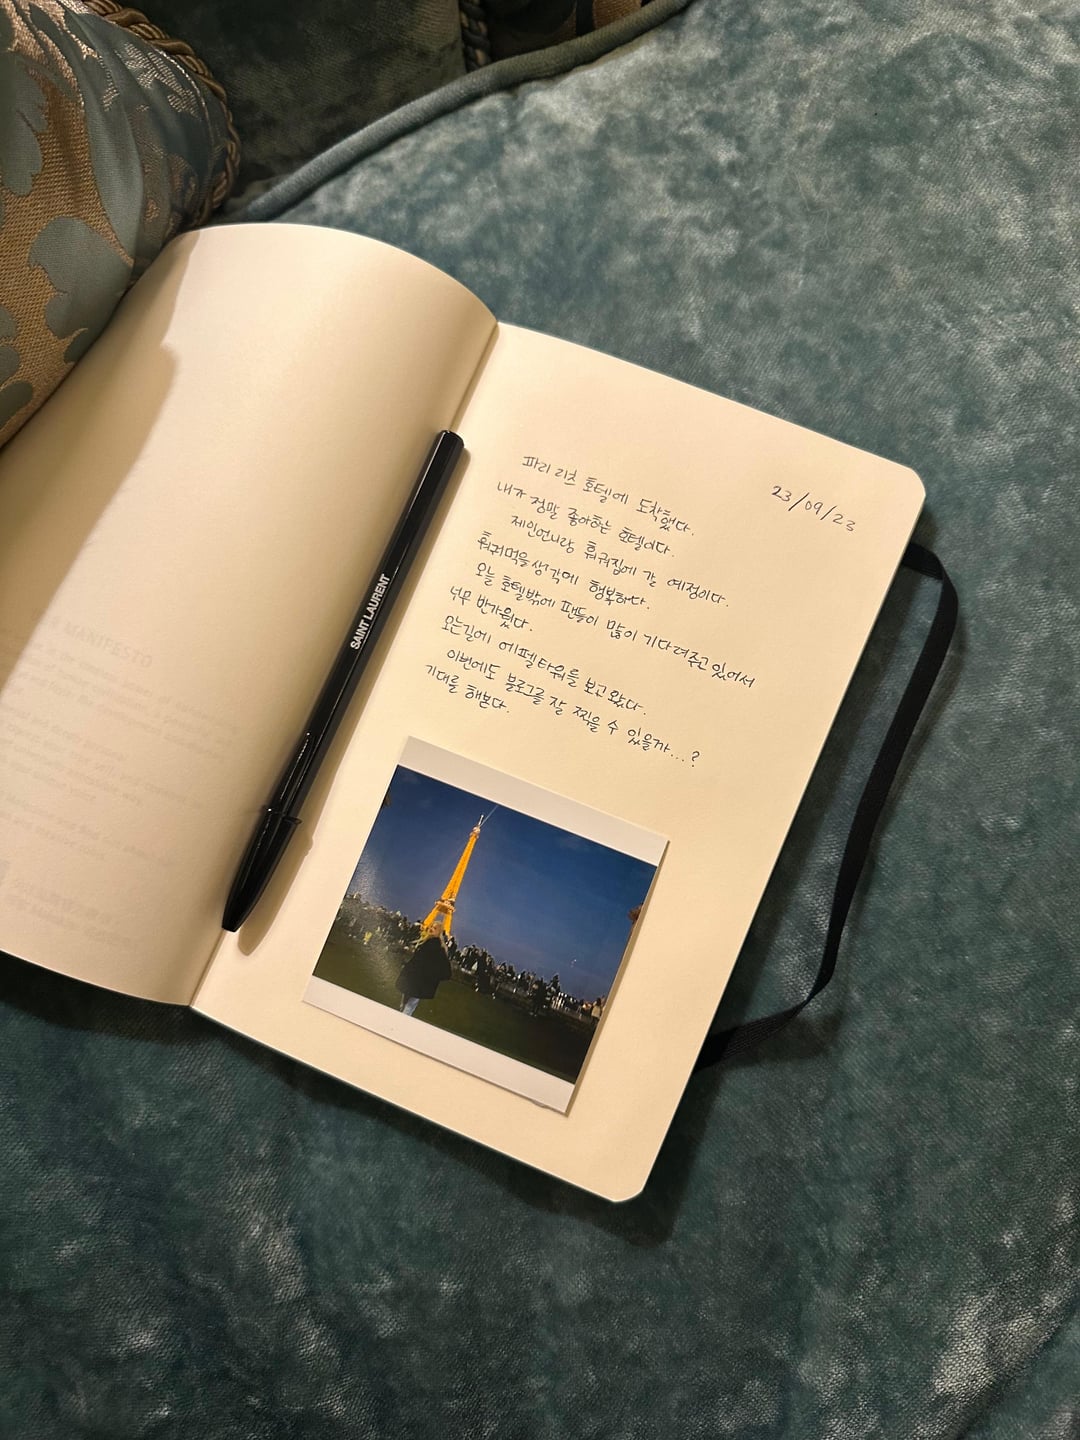 SAINT LAURENT
23/09/23
파리 리츠 호텔에 도착했다.
내가 정말 좋아하는 호텔이다.
제인언니랑 훠궈집에 갈 예정이다.
훠궈먹을 생각에 행복하다.
오늘 호텔밖에 팬들이 많이 기다려주고 있어서
너무 반가웠다.
오는길에 에펠타워를 보고 왔다.
이번에도 블로그를 잘 찍을 수 있을까...?
기대를 해본다.
MANIFESTO